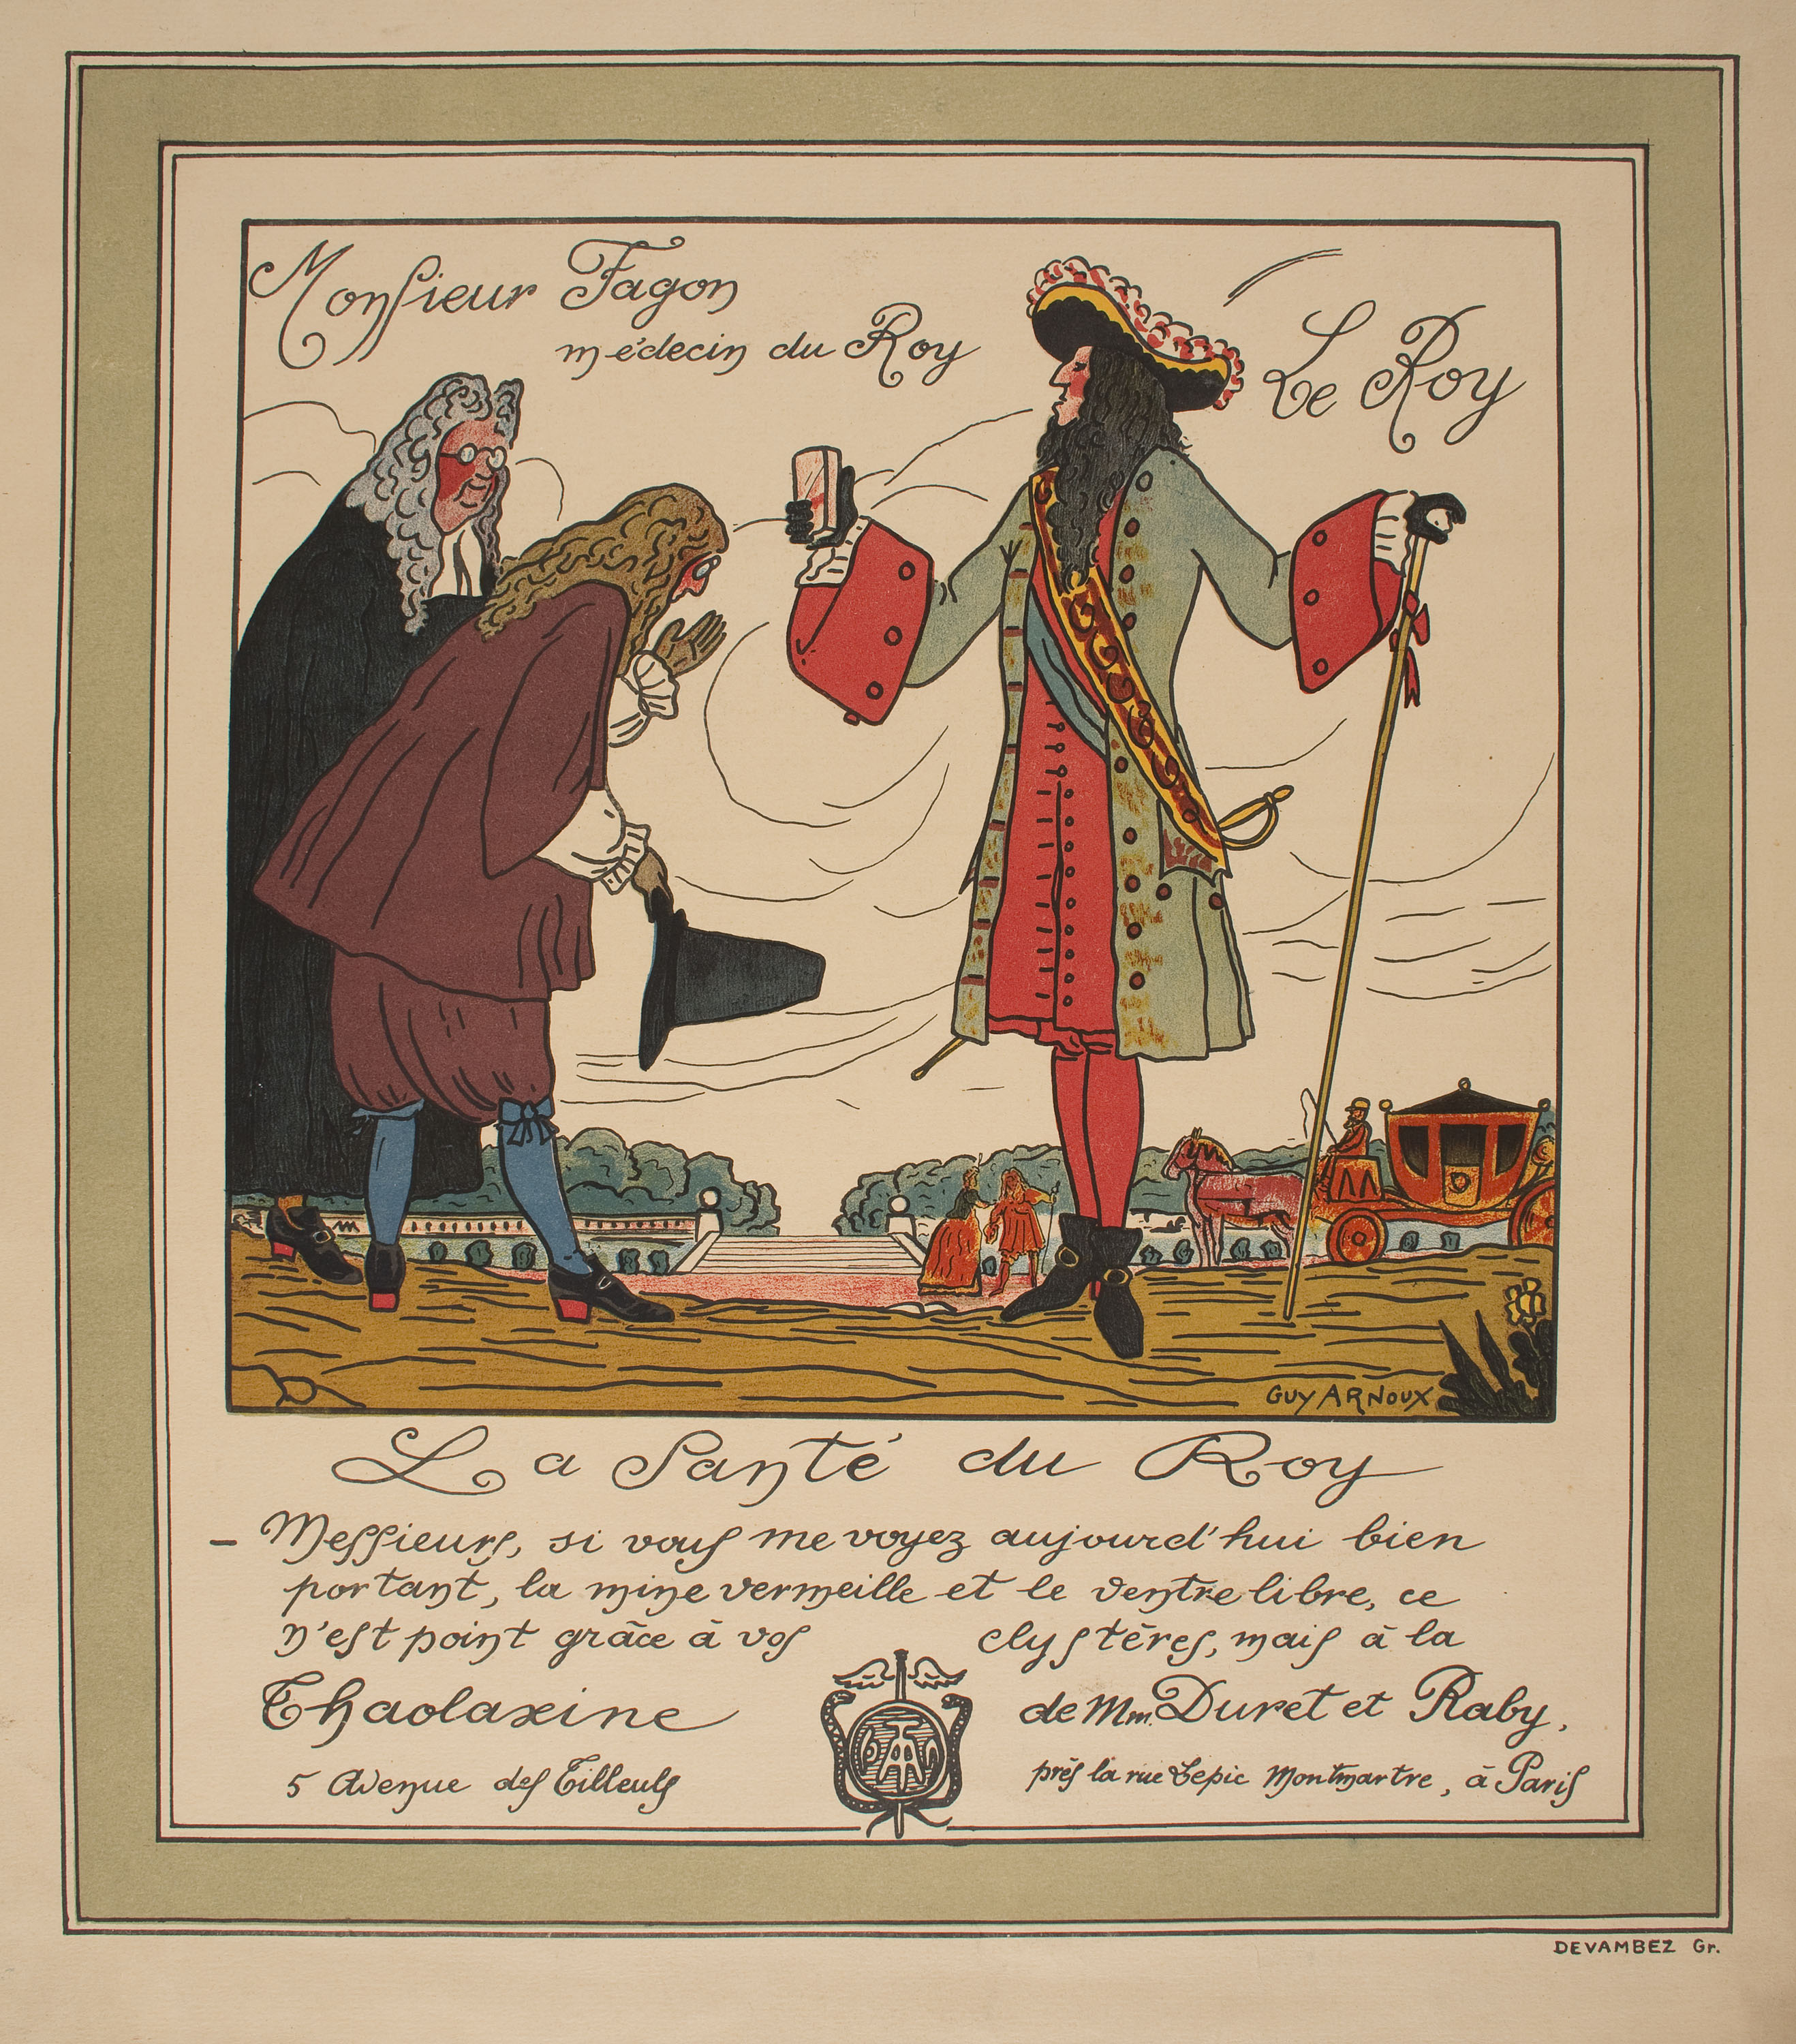 Monsieur Fagon
médecin du Roy
Le Roy
GUY ARNOUX
La Santé du Roy
— Messieurs, si vous me voyez aujourd'hui bien
portant, la mine vermeille et le ventre libre, ce
n'est point grâce à vos clystères, mais à la
Thaolaxine de Mm. Duret et Raby,
5 Avenue des Tilleuls près la rue Lepic Montmartre, à Paris
DEVAMBEZ Gr.